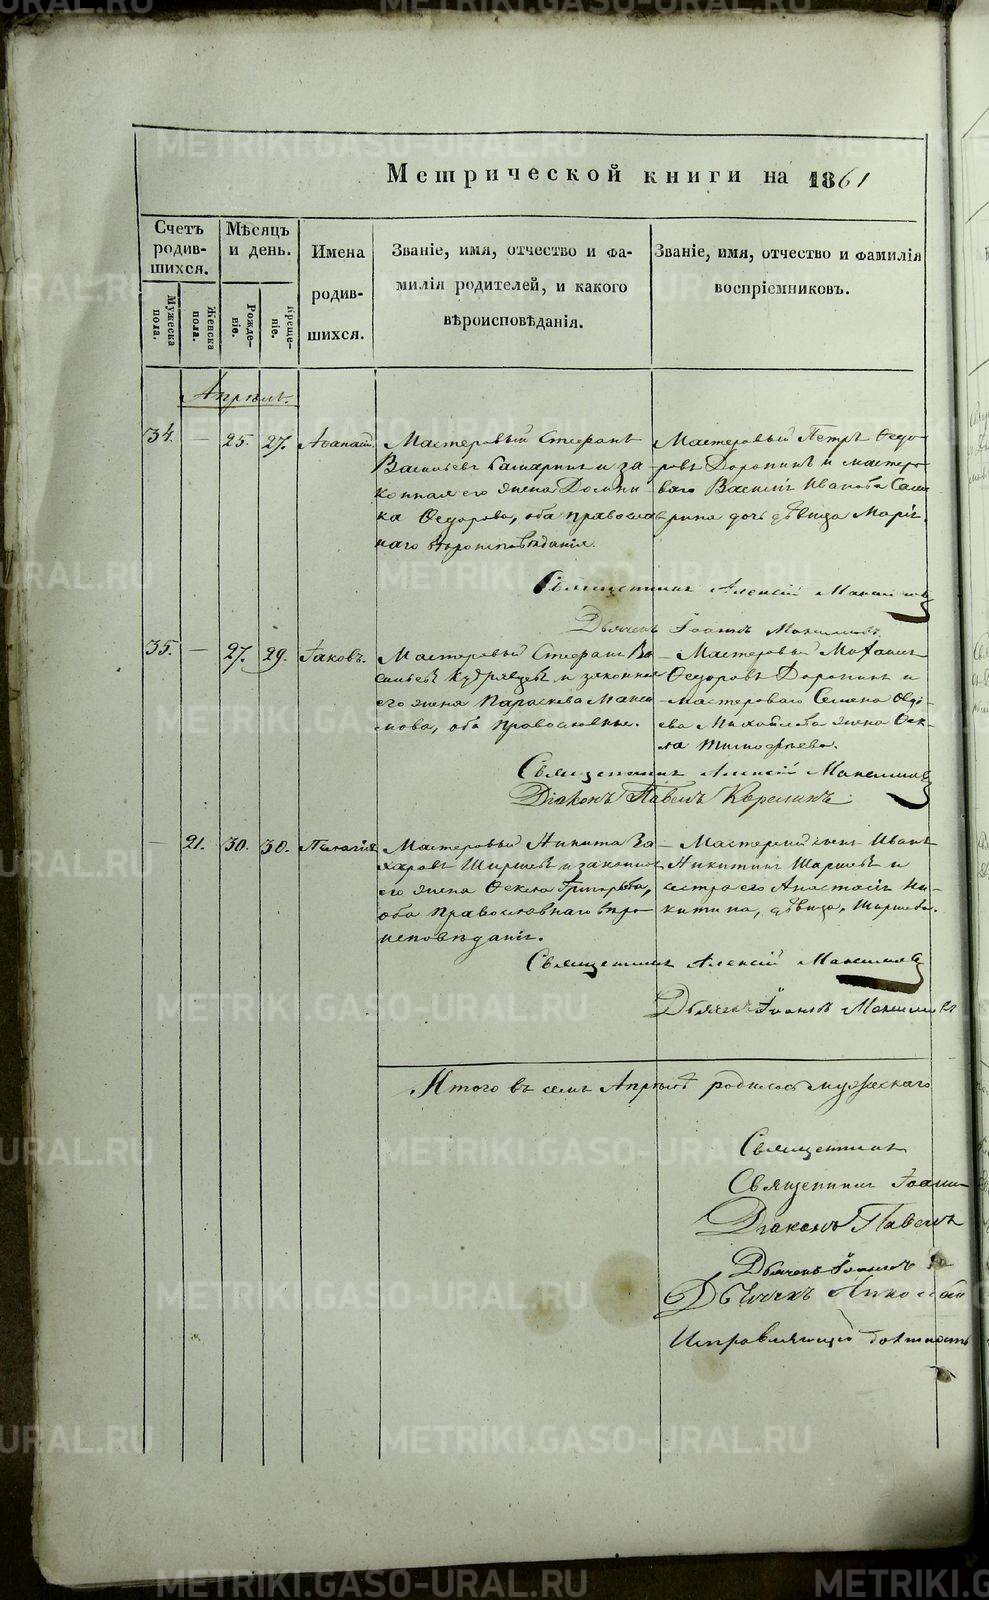 Метрической книги на 1861
Счетъ родившихся.
Мужеска пола.
Женска пола.
Мѣсяцъ и день.
Рожденіе.
Крещеніе.
Имена родившихся.
Званіе, имя, отчество и фамилія родителей, и какого вѣроисповѣданія.
Званіе, имя, отчество и фамилія воспріемниковъ.
Апрѣль.
34. — 25. 27. Аѳанасій
Мастеровый Стефанъ
Васильевъ и за
конная его жена Домни
ка Ѳедорова, оба православ
наго вѣроисповѣданія.
Мастеровый Петръ Ѳедо
ровъ Доронинъ и мастеро
ваго Василія Иванова
дочь дѣвица Марія.
Священникъ Алексій Максимовъ
Дьячекъ Іоаннъ Максимовъ.
35. — 27. 29. Іаковъ.
Мастеровый Стефанъ Ва
сильевъ Кудрявцевъ и законная
его жена Параскева Макси
мова, оба православные.
Мастеровый Михаилъ
Ѳедоровъ Доронинъ и
мастероваго Семена
Михайлова жена Ѳек
ла Тимофѣева.
Священникъ Алексій Максимовъ
Діаконъ Павелъ Корелинъ
— 21. 30. 30. Пелагія
Мастеровый Никита За
харовъ Ширшевъ и законная
его жена Ѳекла Григорьева,
оба православнаго вѣро
исповѣданія.
сынъ Иванъ
Никитинъ Ширшевъ и
сестра его Анастасія Ни
китина, дѣвица, Ширшева.
Священникъ Алексій Максимовъ
Дьячекъ Іоаннъ Максимовъ
Итого въ семъ Апрѣлѣ родилось мужескаго
Священникъ
Священникъ Іоаннъ
Діаконъ Павелъ
Дьячекъ Іоаннъ
Дьячекъ Николай
Исправляющій должность
METRIKI.GASO-URAL.RU